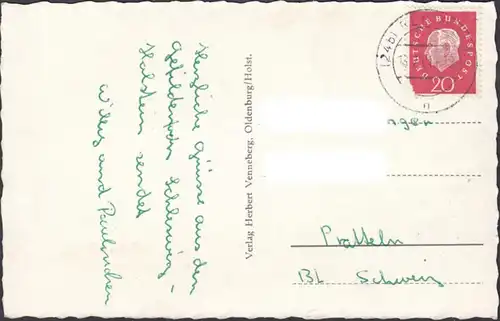 Herzliche Grüsse aus dem
Schleswig-
Holstein sendet
Willy und Paulinchen
Verlag Herbert Venneberg, Oldenburg/Holst.
(24b)
DEUTSCHE BUNDESPOST
20
Pratteln
BL Schweiz